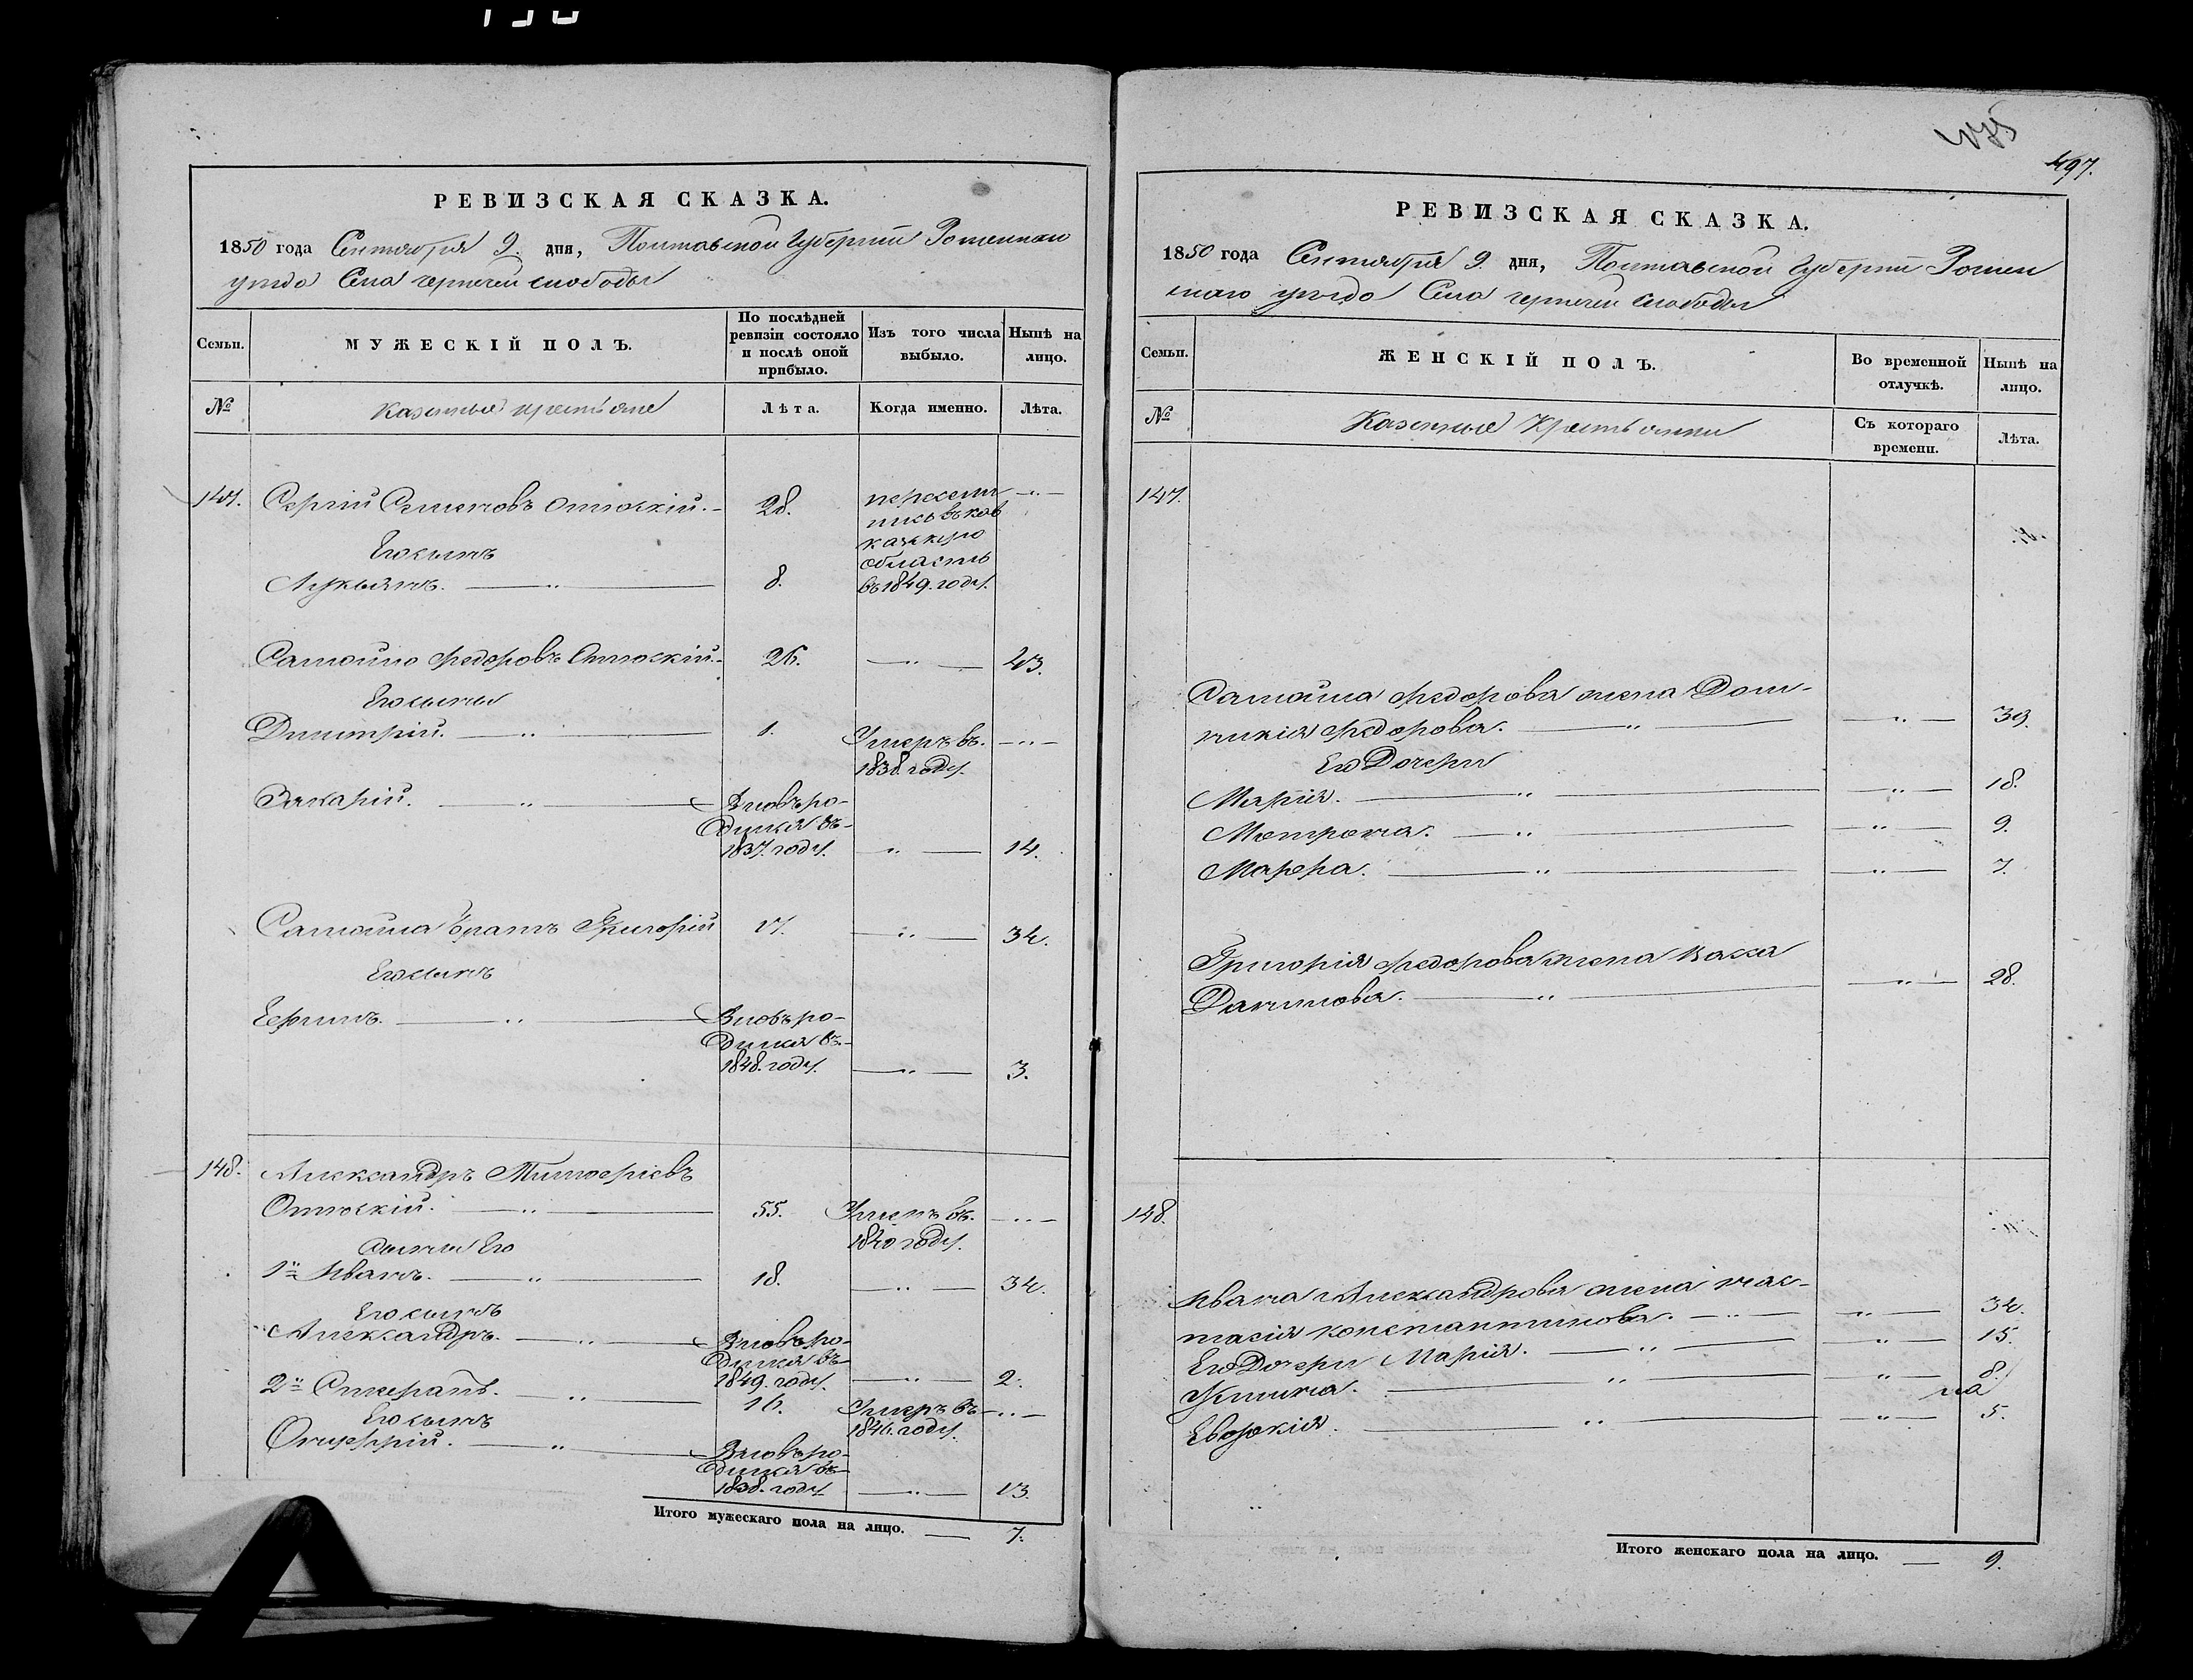 497.
РЕВИЗСКАЯ СКАЗКА.
1850 года Сентября 9. дня, Полтавской Губерніи Роменскаго
уѣзда Села Чернечей слободы
Семьи.
МУЖЕСКІЙ ПОЛЪ.
По послѣдней
ревизіи состояло
и послѣ оной
прибыло.
Изъ того числа
выбыло.
Нынѣ на
лицо.
№
Казенные крестьяне
Лѣта.
Когда именно.
Лѣта.
147. Сергій Семеновъ 28.
Его сынъ
Лукьянъ. 8.
область
въ 1849. году.
Самойло Федоровъ 26. 43.
Его сыны
Димитрій. 1. Умеръ въ
1838. году.
Захарій. Вновь ро-
дился въ
1837. году. 14.
Самойла братъ Григорій 17. 34.
Его сынъ
Ефимъ. Вновь ро-
дился въ
1848. году. 3.
148. Александръ Тимофѣевъ
55. Умеръ въ
1840 году.
Сыны Его
1й Иванъ. 18. 34.
Его сынъ
Александръ. Вновь ро-
дился въ
1849. году. 2.
2й 16. Умеръ въ
1846. году.
Его сынъ
Онуфрій. Вновь ро-
дился въ
1838. году 13.
Итого мужескаго пола на лицо. 7.
РЕВИЗСКАЯ СКАЗКА.
1850 года Сентября 9. дня, Полтавской Губерніи Ромен
скаго уѣзда Села Чернечей Слободы
Семьи.
ЖЕНСКІЙ ПОЛЪ.
Во временной
отлучкѣ.
Нынѣ на
лицо.
№
Казенные Крестьянки
Съ котораго
времени.
Лѣта.
147.
Самойла Федорова жена Дом-
никія Федорова. 39.
Его Дочери
Марія. 18.
Мотрона. 9.
Марфа. 7.
Григорія Федорова жена Васса
Данилова. 28.
148.
Ивана Александрова жена Нас-
тасія Константинова. 34.
Его Дочери Марія. 15.
8.
Евдокія. 5.
Итого женскаго пола на лицо. 9.